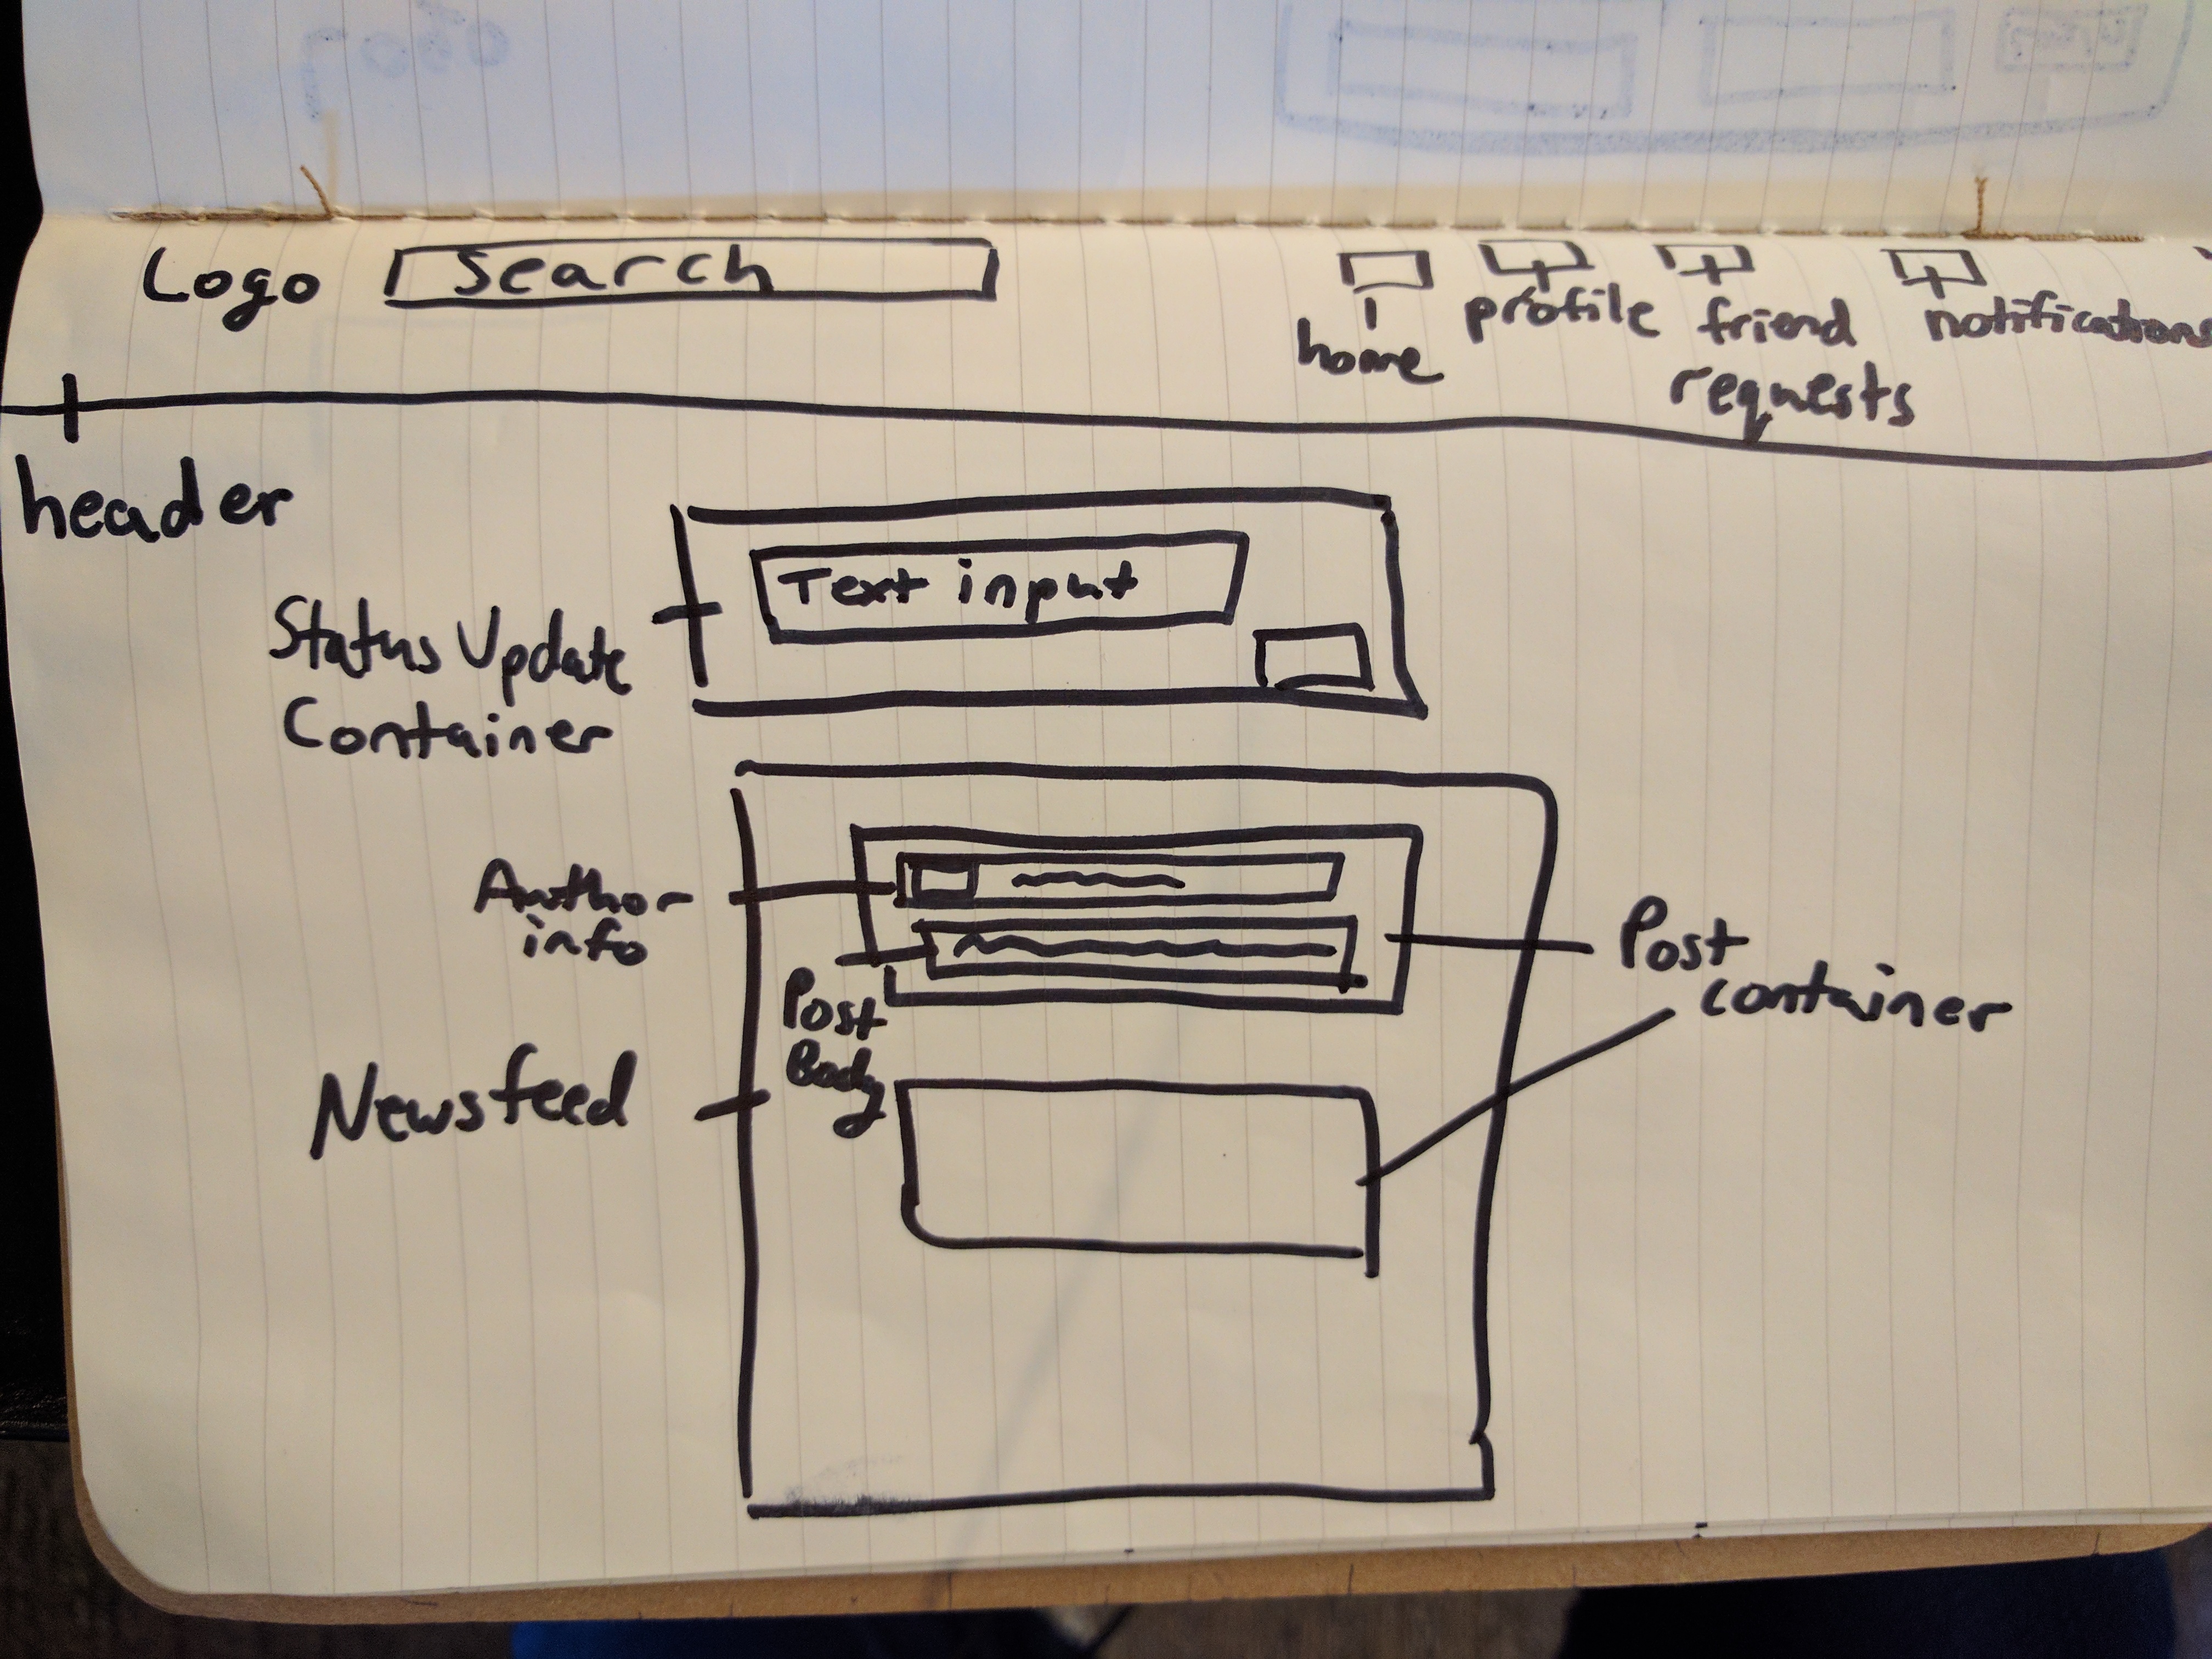 Logo
Search
home
profile
friend
requests
notifications
header
Text input
Status Update
Container
Author
info
Post
Body
Post
container
Newsfeed